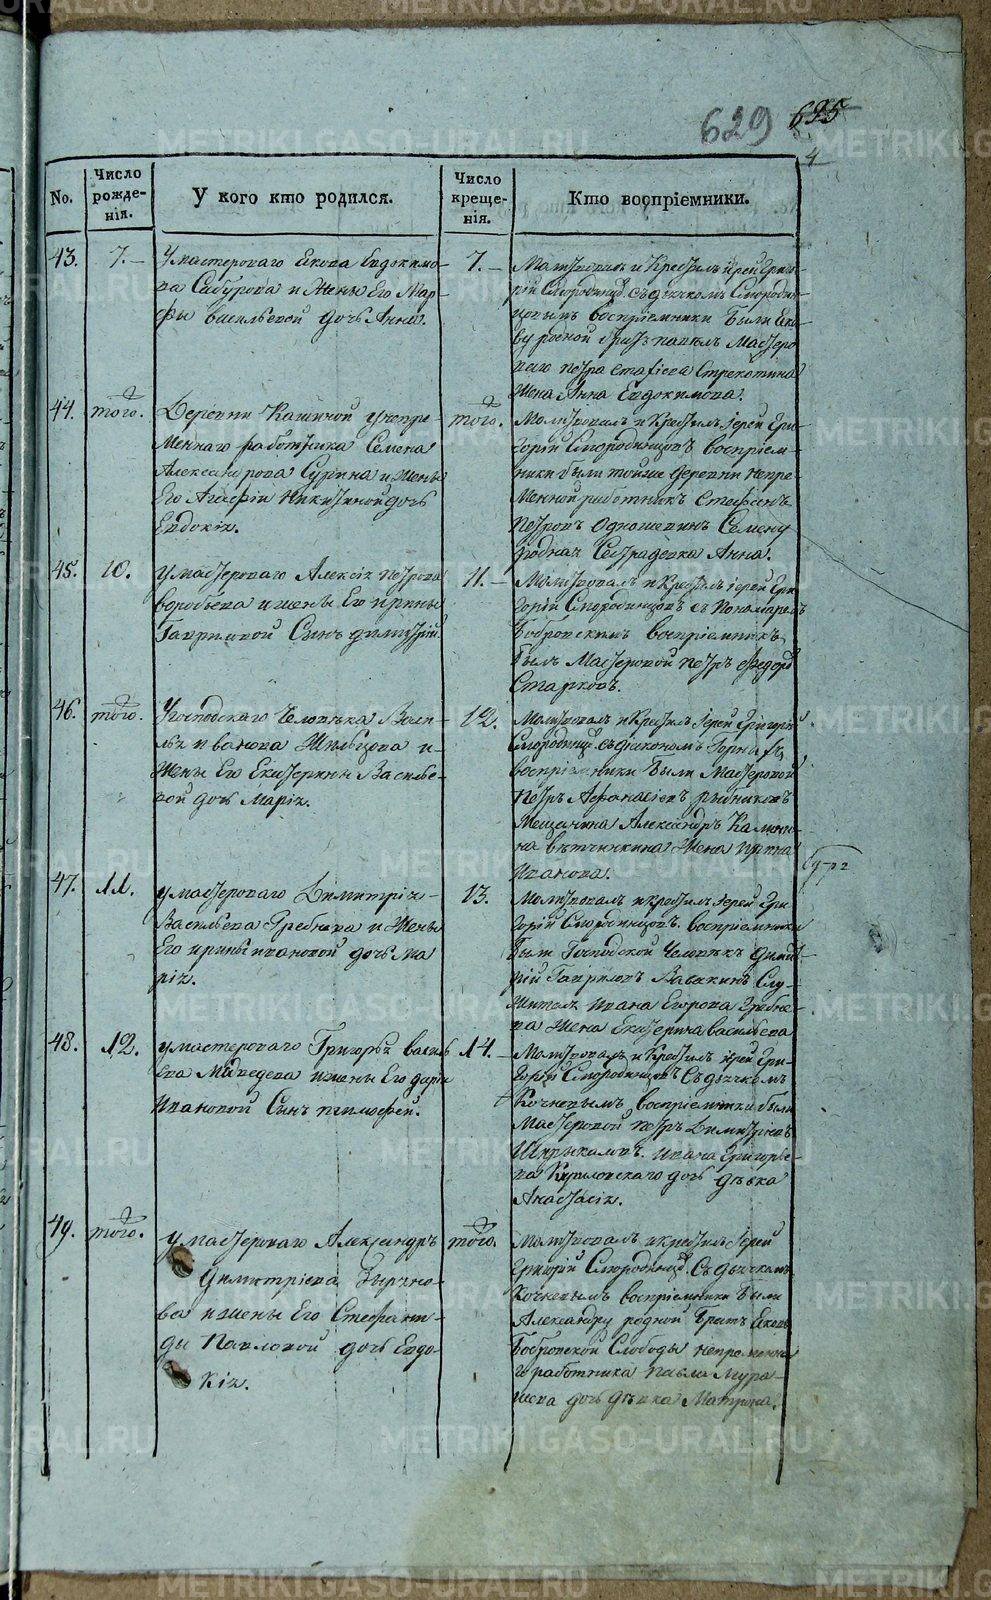 629 625
4
No.
Число рожде-нія.
У кого кто родился.
Число креще-нія.
Кто воспріемники.
43.
7.
У мастероваго Якова Евдокимо-
ва Сабурова и жены Его Мар-
фы васильевой дочь Анна.
7.
Молитвовалъ и Крестилъ іерей Григо-
рій Смородинцѡ. съ дьячкомъ Смородин-
цовымъ воспріемники были Яко-
ву родной братъ павелъ Мастеро
ваго петра Стрекотина
жена Анна Евдокимова.
44.
того.
Деревни Кашиной у непре-
меннаго работника Семена
Александрова Сурина и жены
Его Агафіи Никитиной дочь
Евдокія.
того.
Молитвовалъ и Крестилъ іерей Гри-
горій Смородинцовъ воспріем-
ники были тойже деревни непре-
менной работникъ Стефанъ
Петровъ Семену
родная Сестра девка Анна.
45.
10.
у мастероваго Алексія петрова
воробьева и жены Его ирины
Гавриловой Сынъ димитрій.
11.
Молитвовалъ и Крестилъ іерей Гри-
горій Смородинцовъ съ Пономаремъ
Бобровскимъ воспріемникъ
былъ Мастеровой петръ Федоровъ
Старковъ.
46.
того.
У господскаго Человѣка Васи-
лья иванова Жильцова и
жены Его Екатерины Василье-
вой дочь Марія.
12.
Молитвовалъ и Крестилъ іерей Григорій
Смородинцѡ. съ діакономъ
воспріемники были Мастеровой
Петръ Афанасіевъ рыбниковъ
Мещанина Александръ Калини-
на вѣтчинкина жена ирина
Иванова.
47.
11.
у мастероваго Димитрія
Васильева Гребнева и жены
Его ирины ивановой дочь Ма
рія.
13.
Молитвовалъ и крестилъ іерей Гри-
горій Смородинцовъ. воспріемники
были Господской Человѣкъ димит-
рій Гавриловъ Вавакинъ Слу-
жителя ивана Егорова Гребне-
ва жена Екатерина васильева
48.
12.
у мастероваго Григорья василь
ева Мѣдведева и жены Его дарьи
Ивановой Сынъ тимофей.
14.
Молитвовалъ и Крестилъ іерей Гри-
горій Смородинцовъ Съ дьячкомъ
Кочневымъ, воспріемники были
Мастеровой петръ Димитріевъ
Шкрыкаловъ. ивана Григорье-
ва Кириловскаго дочь дѣвка
Анастасія.
49.
того.
у мастероваго Александръ
Димитріева Зырино-
ва и жены Его Стефани-
ды Павловой дочь Евдо-
кія.
того.
Молитвовалъ и крестилъ іерей
Григорій Смородинцѡ. Съ дьячкомъ
Кочневымъ воспріемники были
Александру родной братъ Яковъ
Бобровской Слободы непременна
го работника павла Мура-
шева дочь дѣвка Матрона.
METRIKI.GASO-URAL.RU